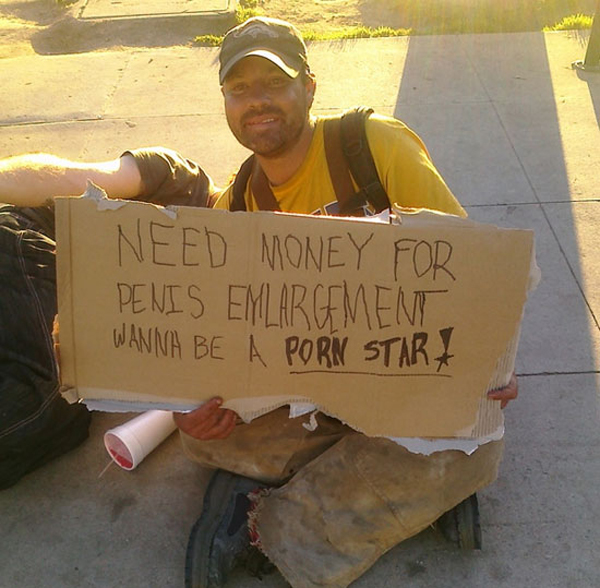 NEED MONEY FOR
PENIS ENLARGEMENT
WANNA BE A PORN STAR!